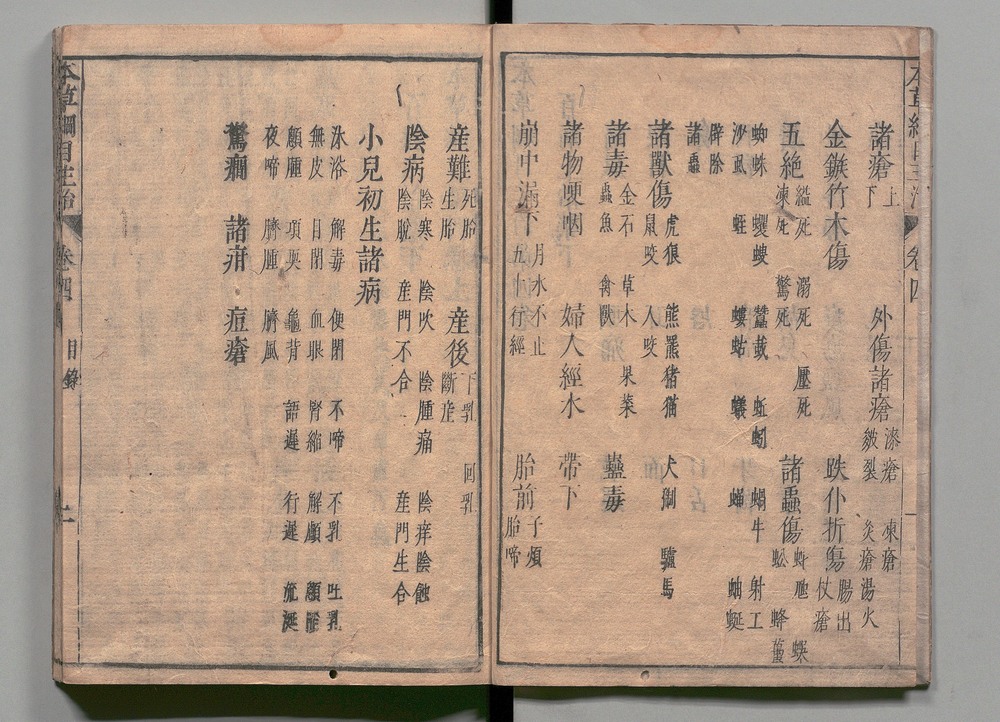 諸瘡上下 外傷諸瘡漆瘡 凍瘡 皴裂 灸瘡 湯火
金鏃竹木傷 跌仆折傷腸出 杖瘡
五絶縊死 溺死 壓死 凍死 驚死 諸蟲傷蛇虺 蜈蚣 蜂蠆
蜘蛛 蠼螋 蠶蛓 蚯蚓 蝸牛 射工
沙虱 蛭 螻蛄 蟻 蠅 蚰蜒
辟除
諸蟲
諸獸傷虎狼 熊羆 猪猫 犬猘 驢馬 鼠咬 人咬
諸毒金石 草木 果菜 蟲魚 禽獸 蠱毒
諸物哽咽 婦人經水 帶下
崩中漏下月水不止 五十行經 胎前子煩 胎啼
產難死胎 生胎 產後下乳 回乳 斷產
陰病陰寒 陰吹 陰腫痛 陰痒陰蝕 陰脫 產門不合 產門生合
小兒初生諸病
沐浴 解毒 便閉 不啼 不乳 吐乳
無皮 目閉 血眼 腎縮 解顱 顖腫
顱腫 項耎 龜背 語遲 行遲 流涎
夜啼 臍腫 臍風
驚癇 諸疳 痘瘡
本草綱目主治 卷四 目錄 二